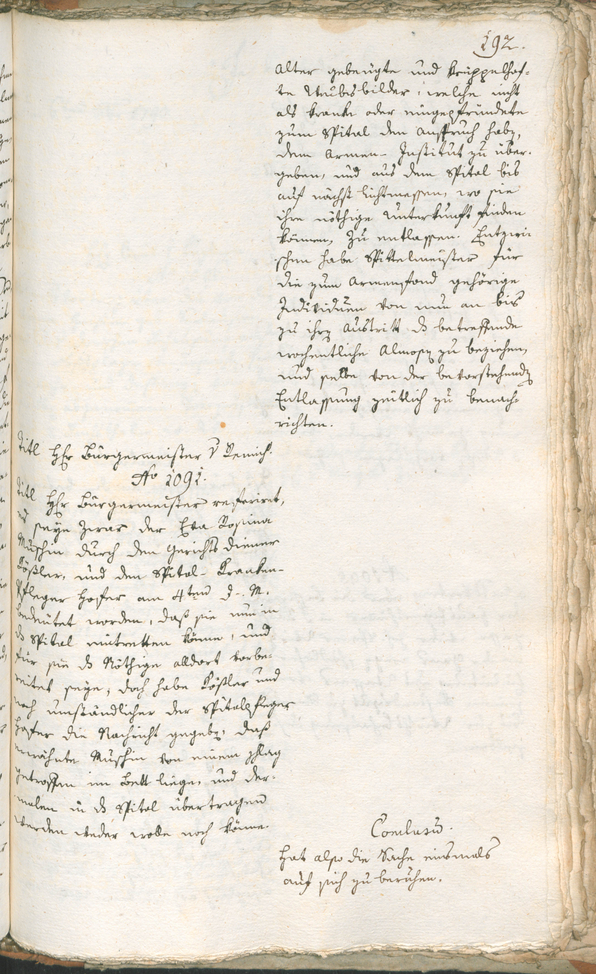 192.
alter gebeugte und krüppelhaf-
te Weibsbilder, welche nicht
als kranke oder eingepfründete
zum Spital den Anspruch habn,
dem Armen-Institut zu über-
geben, und aus dem Spital bis
auf nächst Lichtmessen, wo sie
ihre nöthige Unterkunft finden
können, zu entlassen. Entzwi-
schen habe Spittelmeister für
die zum Armenfond gehörige
Individuen von nun an bis
zu ihrn Austritt ds betreffende
wochentliche Almosn zu beziehen,
und selbe von der bevorstehendn
Entlassung zeitlich zu benach-
richten.
Titl Hr Bürgermeister v
No 1091.
Titl Hr Bürgermeister referiret,
es seye zwar der Eva Rosina
Muschin durch den Gerichts diener
Kößler, und den Spital-Kranken-
Pfleger Hofer am 4ten d. M.
bedeutet worden, daß sie nun in
ds Spital eintretten könne, und
für sie ds Nöthige alldort vorbe-
reitet seye; doch habe Kößler und
noch umständlicher der Spitalpfleger
Hofer die Nachricht gegebn, daß
erwähnte Muschin von einem Schlag
getroffen im Bett liege, und der-
malen in ds Spital übertragen
werden weder wolle noch könne.
Conclusū.
Hat also die Sache einsmals
auf sich zu beruhen.